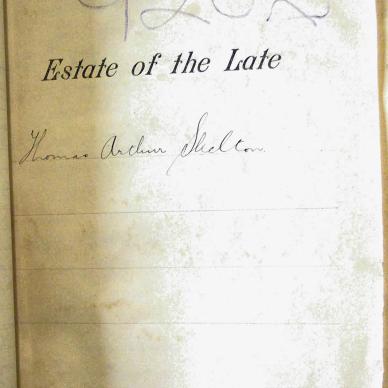 Estate of the Late
Thomas Arthur Skelton